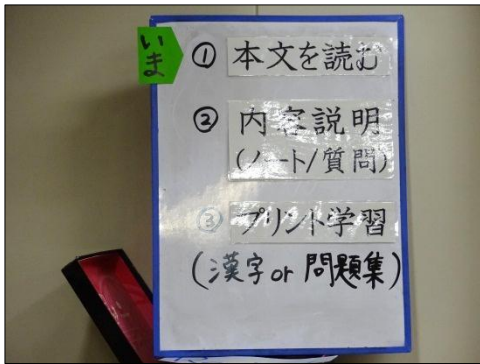 いま
① 本文を読む
② 内容説明
(ノート/質問)
③ プリント学習
(漢字 or 問題集)